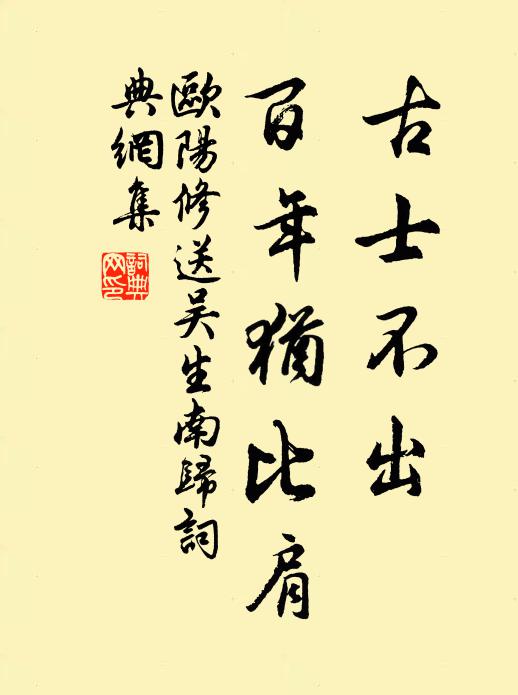 古士不出
百年猶比肩
歐陽修送吴生南歸詞
典網集
詞典網印